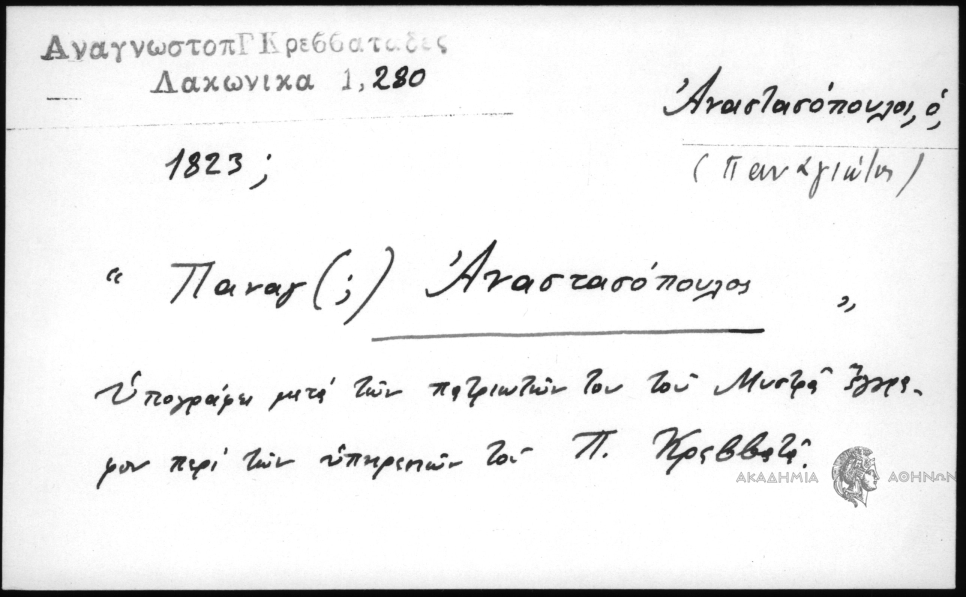 ΑναγνωστοπΓΚρεββαταδες
Λακωνικα 1,280
Ἀναστασόπουλος, ὁ,
(Παναγιώτης)
1823;
“ Παναγ(;) Ἀναστασόπουλος „
Ὑπογράφει μετά τῶν πατριωτῶν του τοῦ Μυστρᾶ ἔγγρα-
φον περί τῶν ὑπηρεσιῶν τοῦ Π. Κρεββατᾶ.
ΑΚΑΔΗΜΙΑ ΑΘΗΝΩΝ